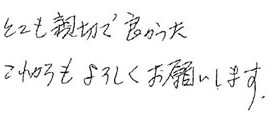 とても親切で良かった
これからもよろしくお願いします.